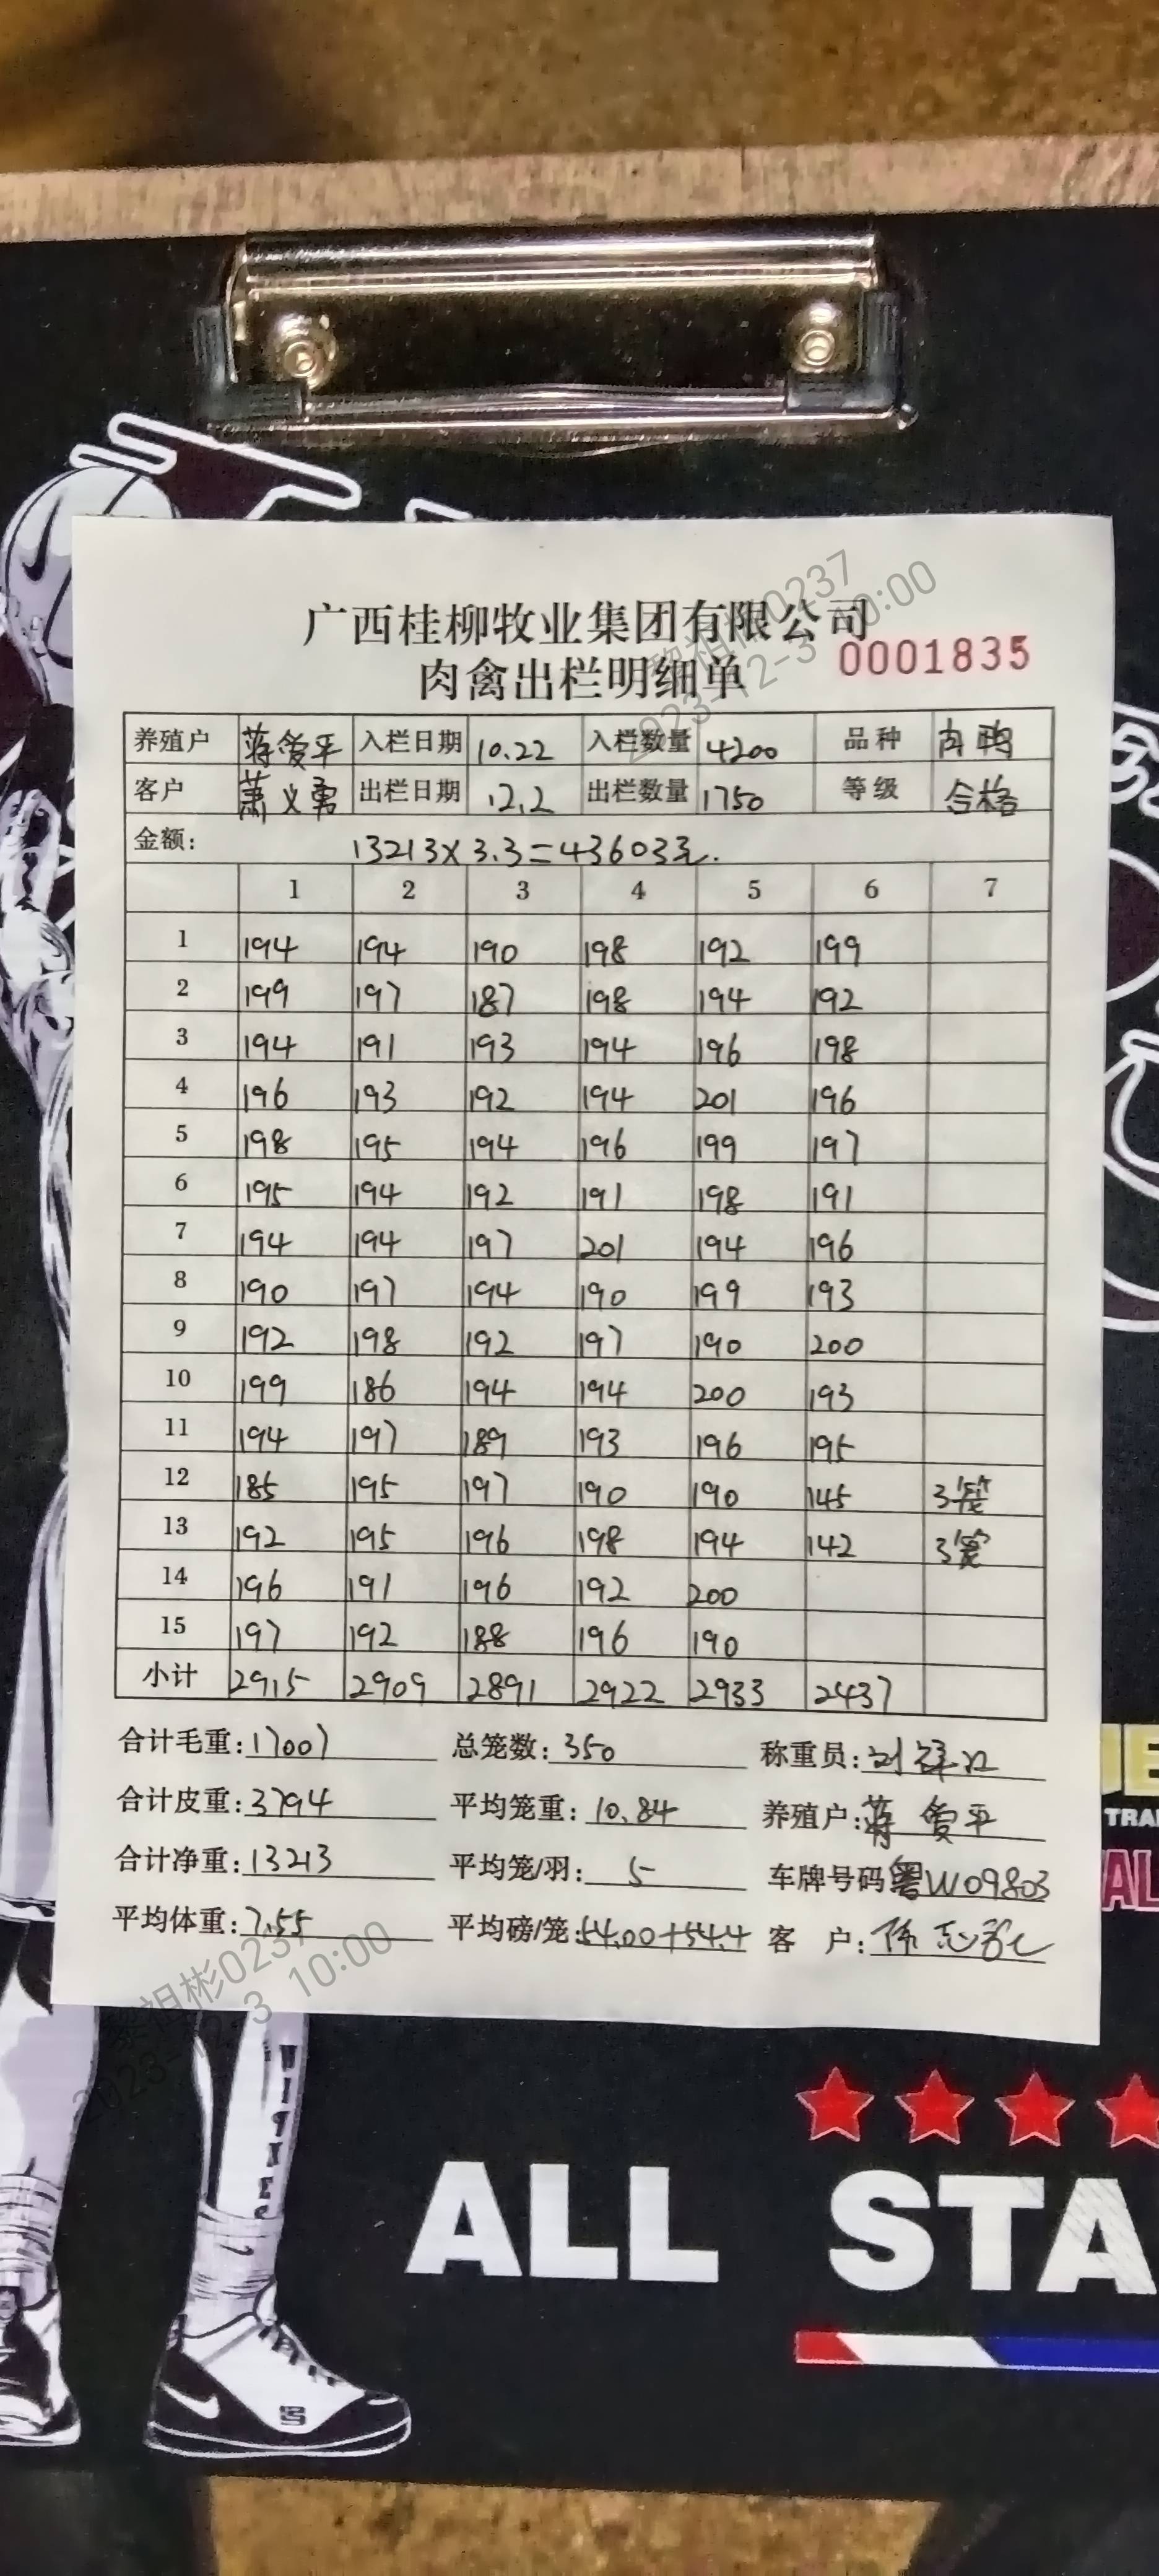 广西桂柳牧业集团有限公司
肉禽出栏明细单 0001835
养殖户 蒋爱平 入栏日期 10.22 入栏数量 4200 品种 肉鸭
客户 萧义勇 出栏日期 12.2 出栏数量 1750 等级 合格
金额: 13213×3.3=43603元.
1 2 3 4 5 6 7
1 194 194 190 198 192 199
2 199 197 187 198 194 192
3 194 191 193 194 196 198
4 196 193 192 194 201 196
5 198 195 194 196 199 197
6 195 194 192 191 198 191
7 194 194 197 201 194 196
8 190 197 194 190 199 193
9 192 198 192 197 190 200
10 199 186 194 194 200 193
11 194 197 189 193 196 195
12 185 195 197 190 190 145 3笼
13 192 195 196 198 194 142 3笼
14 196 191 196 192 200
15 197 192 188 196 190
小计 2915 2909 2891 2922 2933 2437
合计毛重:17007 总笼数:350 称重员:
合计皮重:3794 平均笼重:10.84 养殖户:蒋爱平
合计净重:13213 平均笼/羽:5 车牌号码粤W09803
平均体重:7.55 平均磅/笼:54.00+54.4 客 户:
黎祖彬0237
2023-12-3 10:00
黎祖彬0237
2023-12-3 10:00
ALL STA